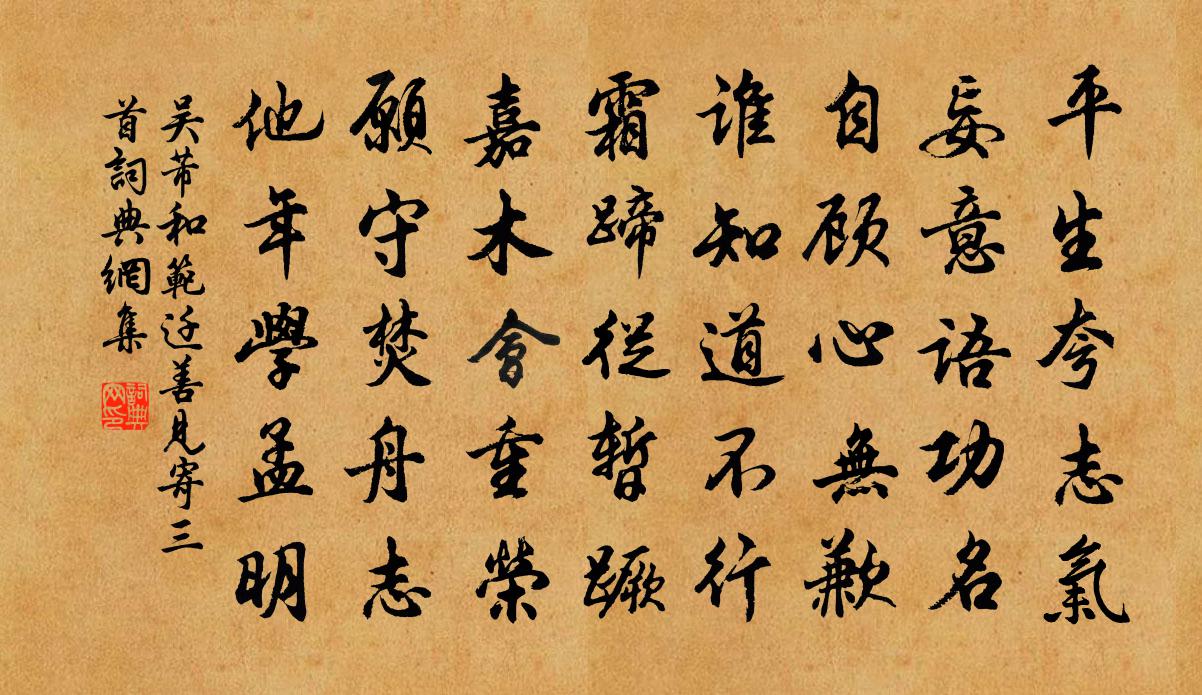 平生夸志氣
妄意語功名
自顾心無歉
誰知道不行
霜蹄從暫蹶
嘉木會重榮
願守焚舟志
他年學孟明
吴芾和範迁善見寄三
首詞典網集
詞典網印